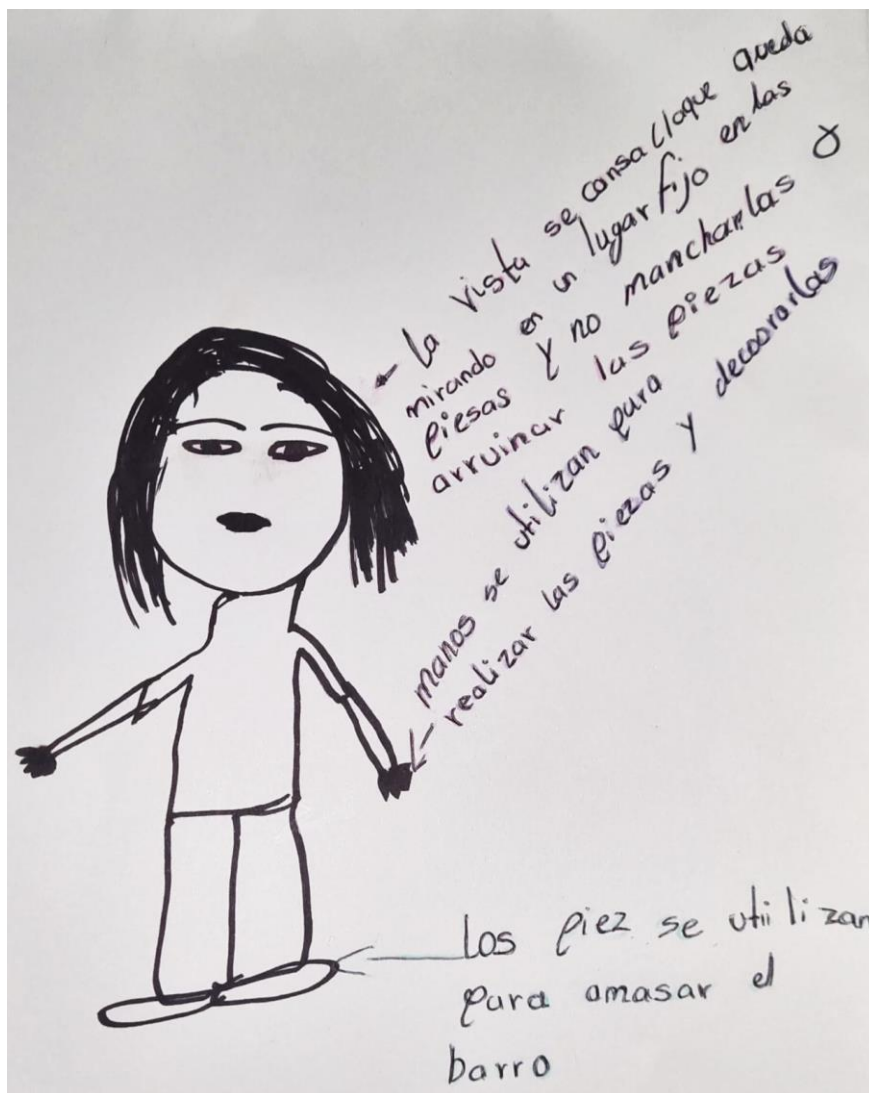 la vista se cansa lla que queda
mirando en un lugar fijo en las
piesas y no mancharlas o
arruinar las piezas
manos se utilizan para
realizar las piezas y decorarlas
Los piez se utiilizan
para amasar el
barro